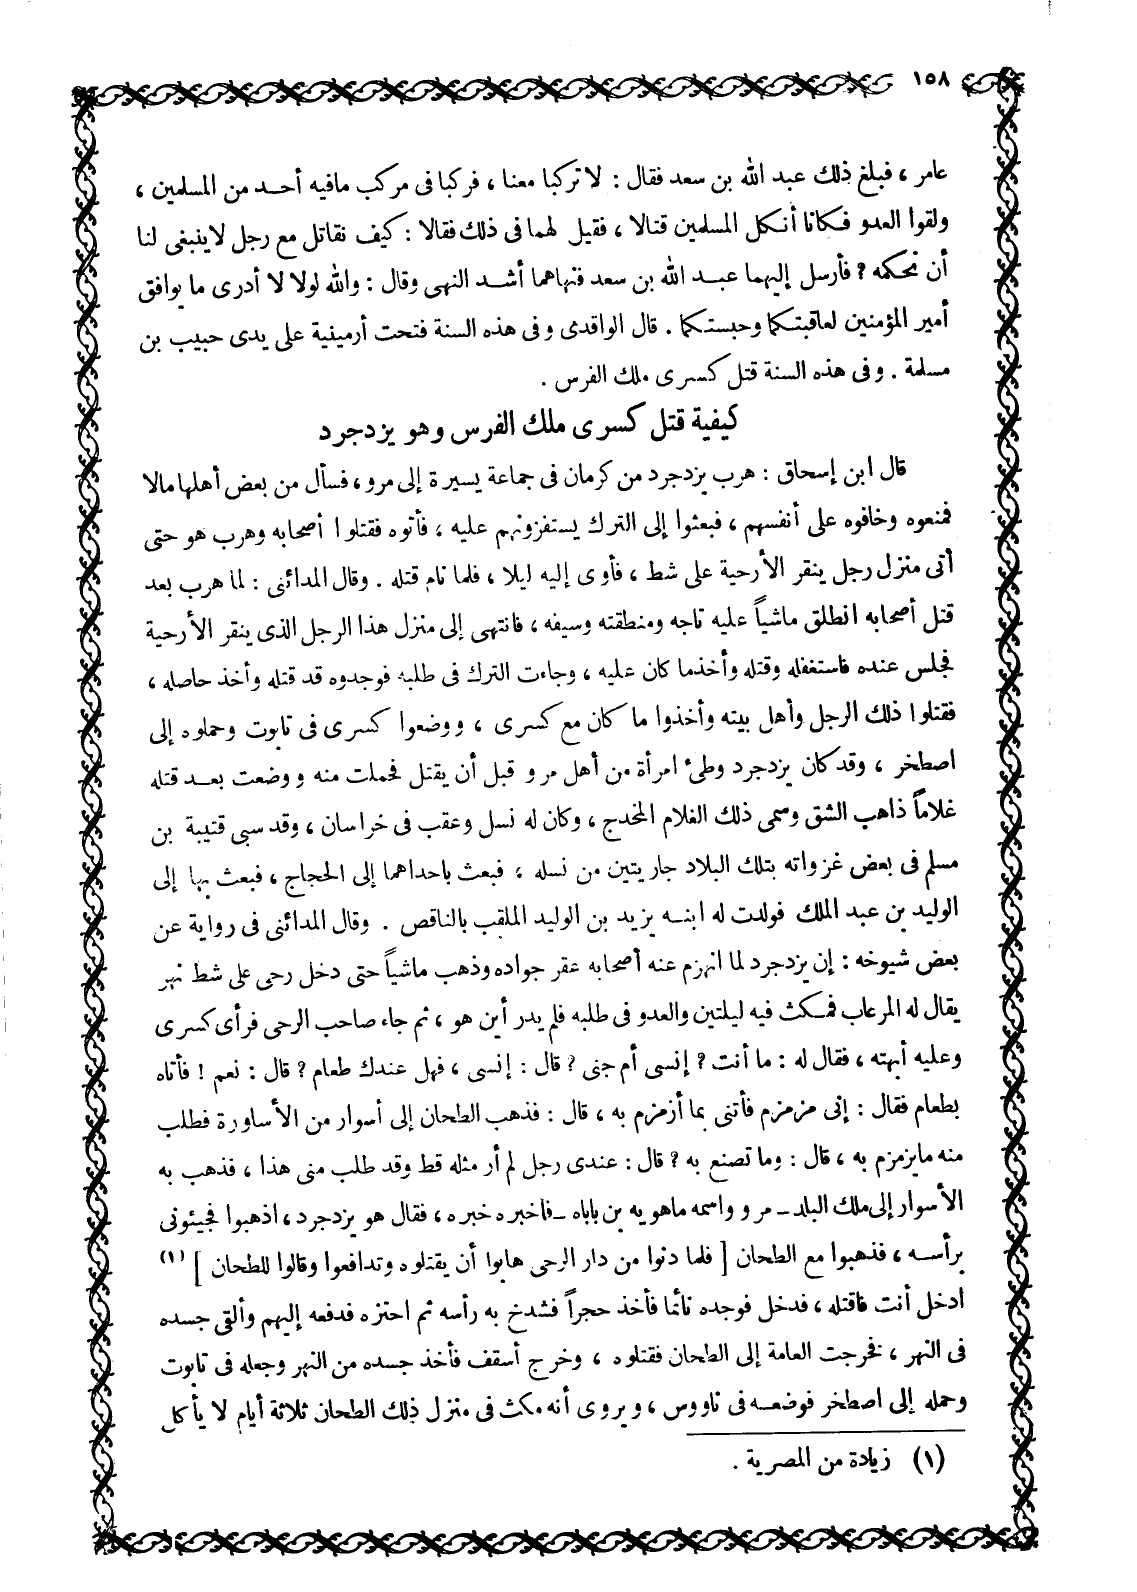 ١٥٨
عامر ، فبلغ ذلك عبد الله بن سعد فقال : لا تركبا معنا ، فركبا فى مركب مافيه أحـد من المسلمين ،
ولقوا العدو فـكانا أنـكل المسلمين قتالا ، فقيل لهما فى ذلك فقالا : كيف نقاتل مع رجل لاينبغى لنا
أن نحكمه ? فأرسل إليهما عبـد الله بن سعد فنهاهما أشـد النهى وقال : والله لولا لا أدرى ما يوافق
أمير المؤمنين لعاقبتـكما وحبستـكما . قال الواقدى وفى هذه السنة فتحت أرمينية على يدى حبيب بن
مسلمة . وفى هذه السنة قتل كسرى ملك الفرس .
كيفية قتل كسرى ملك الفرس وهو يزدجرد
قال ابن إسحاق : هرب يزدجرد من كرمان فى جماعة يسيرة إلى مرو ، فسأل من بعض أهلها مالا
فمنعوه وخافوه على أنفسهم ، فبعثوا إلى الترك يستفزونهم عليه ، فأتوه فقتلوا أصحابه وهرب هو حتى
أتى منزل رجل ينقر الأرحية على شط ، فأوى إليه ليلا ، فلما نام قتله . وقال المدائنى : لما هرب بعد
قتل أصحابه انطلق ماشياً عليه تاجه ومنطقته وسيفه ، فانتهى إلى منزل هذا الرجل الذى ينقر الأرحية
فجلس عنده فاستغفله وقتله وأخذما كان عليه ، وجاءت الترك فى طلبه فوجدوه قد قتله وأخذ حاصله ،
فقتلوا ذلك الرجل وأهل بيته وأخذوا ما كان مع كسرى ، ووضعوا كسرى فى تابوت وحملوه إلى
اصطخر ، وقد كان يزدجرد وطئ امرأة من أهل مرو قبل أن يقتل فحملت منه ووضعت بعـد قتله
غلاماً ذاهب الشق وسمى ذلك الغلام المخدج ، وكان له نسل وعقب فى خراسان ، وقد سبى قتيبة بن
مسلم فى بعض غزواته بتلك البلاد جاريتين من نسله ، فبعث باحداهما إلى الحجاج ، فبعث بها إلى
الوليد بن عبد الملك فولدت له ابنـه يزيد بن الوليد الملقب بالناقص . وقال المدائنى فى رواية عن
بعض شيوخه : إن يزدجرد لما انهزم عنه أصحابه عقر جواده وذهب ماشياً حتى دخل رحى على شط نهر
يقال له المرعاب فمـكث فيه ليلتين والعدو فى طلبه فلم يدر أين هو ، ثم جاء صاحب الرحى فرأى كسرى
وعليه أبهته ، فقال له : ما أنت ? إنسى أم جنى ? قال : إنسى ، فهل عندك طعام ? قال : نعم ! فأتاه
بطعام فقال : إنى مزمزم فأتنى بما أزمزم به ، قال : فذهب الطحان إلى أسوار من الأساورة فطلب
منه مايزمزم به ، قال : وما تصنع به ? قال : عندى رجل لم أر مثله قط وقد طلب منى هذا ، فذهب به
الأسوار إلى ملك البلد ــ مرو واسمه ماهويه بن باباه ــ فاخبره خبره ، فقال هو يزدجرد ، اذهبوا فجيئونى
برأسـه ، فذهبوا مع الطحان [ فلما دنوا من دار الرحى هابوا أن يقتلوه وتدافعوا وقالوا للطحان ] (١)
ادخل أنت فاقتله ، فدخل فوجده نائما فأخذ حجراً فشدخ به رأسه ثم احتزه فدفعه إليهم وألقى جسده
فى النهر ، فخرجت العامة إلى الطحان فقتلوه ، وخرج أسقف فأخذ جسده من النهر وجعله فى تابوت
وحمله إلى اصطخر فوضعـه فى ناووس ، ويروى أنه مكث فى منزل ذلك الطحان ثلاثة أيام لا يأكل
(١) زيادة من المصرية .